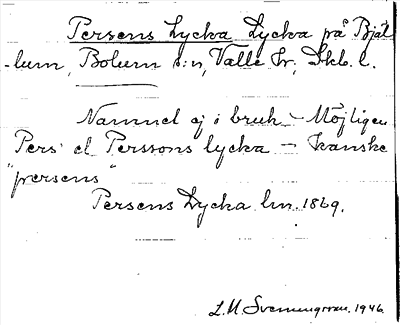 Persens Lycka Lycka på Bjäl
-lum, Bolum s:n, Valle hr, Skb. l.
Namnet ej i bruk - Möjligen
Pers el Perssons lycka - kanske
"persens"
Persens Lycka lm. 1869.
L.M. Svenungsson. 1946.